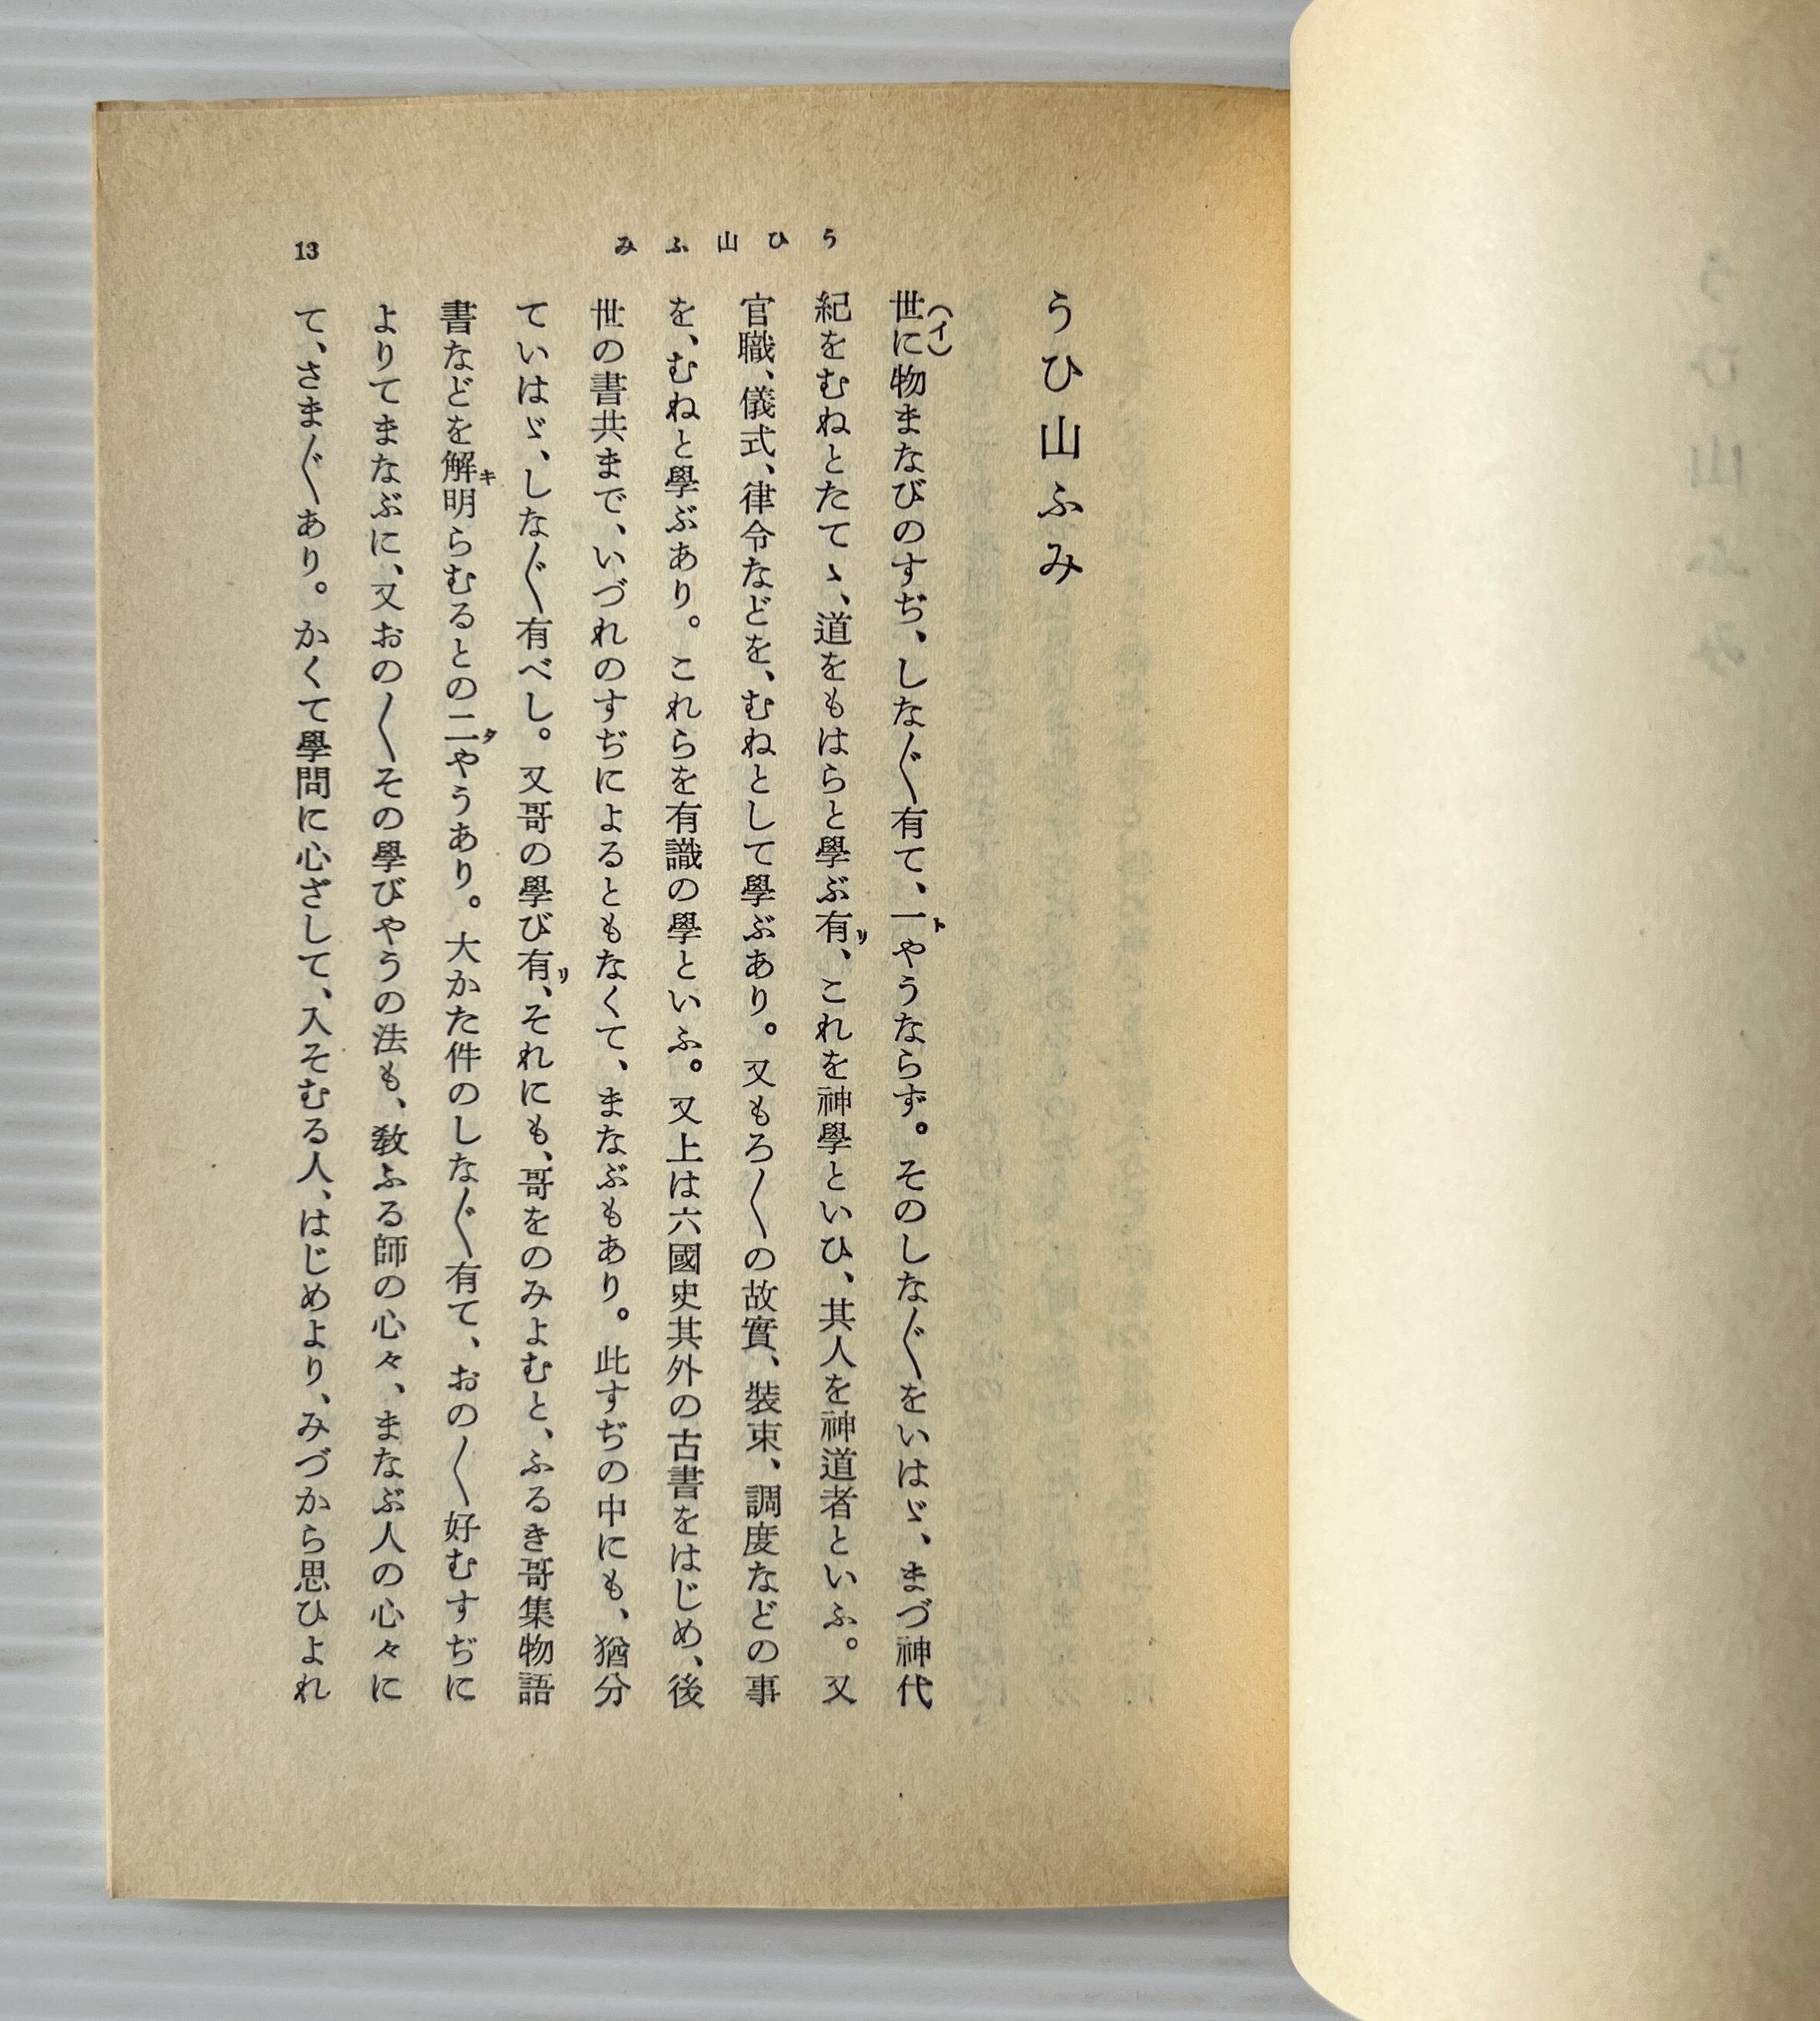 うひ山ふみ
13
うひ山ふみ
世に(イ)物まなびのすぢ、しな〴〵有て、一トやうならず。そのしな〴〵をいはゞ、まづ神代
紀をむねとたてゝ、道をもはらと學ぶ有リ、これを神學といひ、其人を神道者といふ。又
官職、儀式、律令などを、むねとして學ぶあり。又もろ〳〵の故實、裝束、調度などの事
を、むねと學ぶあり。これらを有識の學といふ。又上は六國史其外の古書をはじめ、後
世の書共まで、いづれのすぢによるともなくて、まなぶもあり。此すぢの中にも、猶分
ていはゞ、しな〴〵有べし。又哥の學び有リ、それにも、哥をのみよむと、ふるき哥集物語
書などを解キ明らむるとの二タやうあり。大かた件のしな〴〵有て、おの〳〵好むすぢに
よりてまなぶに、又おの〳〵その學びやうの法も、敎ふる師の心々、まなぶ人の心々に
て、さま〴〵あり。かくて學問に心ざして、入そむる人、はじめより、みづから思ひよれ
うひ山ふみ